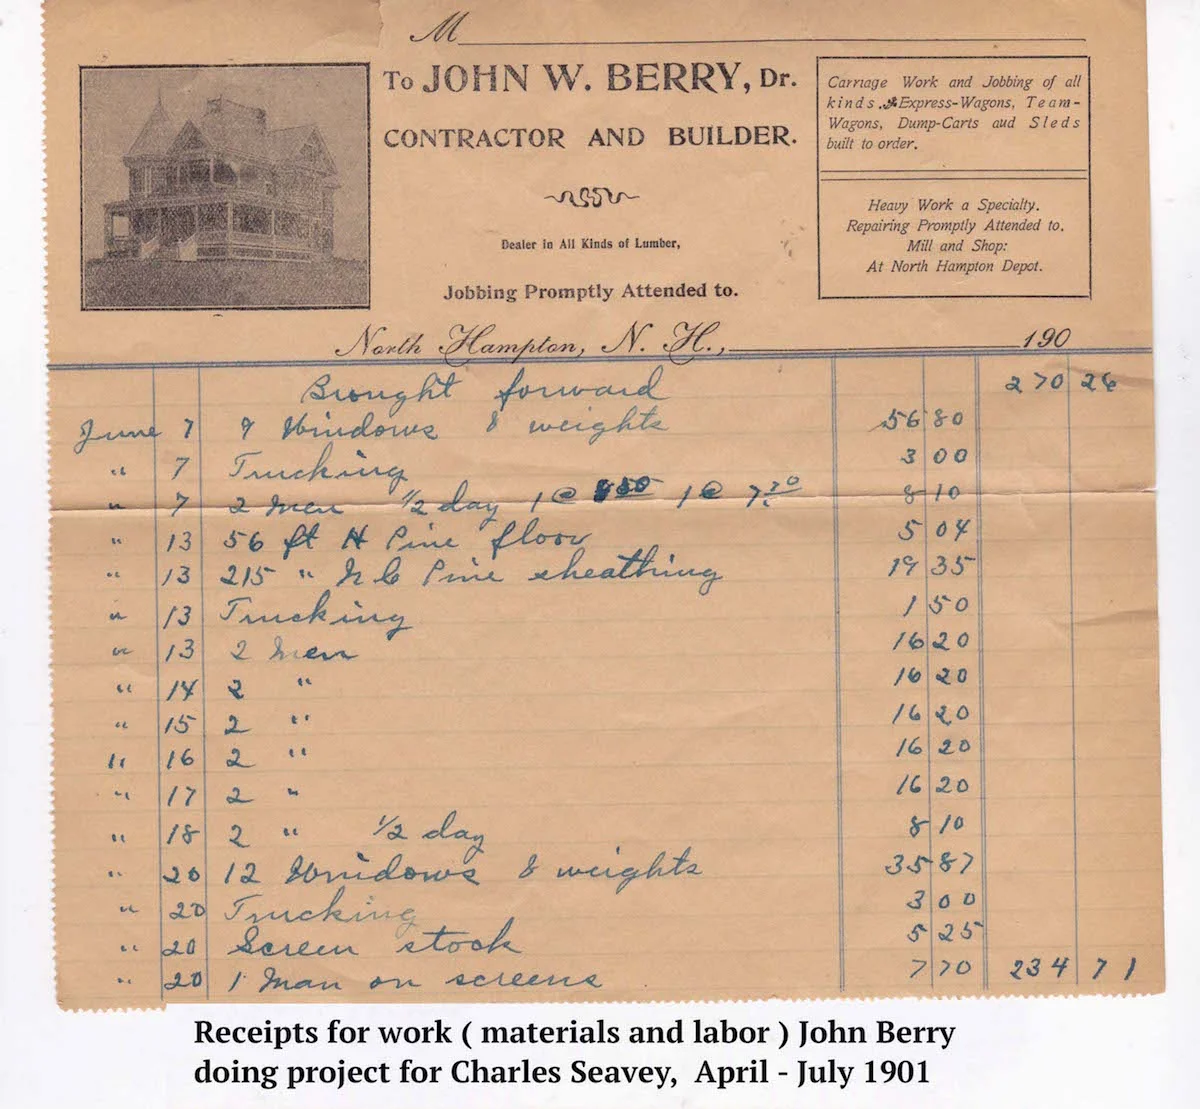 M
To JOHN W. BERRY, Dr.
CONTRACTOR AND BUILDER.
Dealer in All Kinds of Lumber,
Jobbing Promptly Attended to.
Carriage Work and Jobbing of all
kinds. Express-Wagons, Team-
Wagons, Dump-Carts aud Sleds
built to order.
Heavy Work a Specialty.
Repairing Promptly Attended to.
Mill and Shop:
At North Hampton Depot.
North Hampton, N. H., 190
Brought forward 270 26
June 7 9 Windows & weights 56 80
" 7 Trucking 3 00
" 7 2 Men 1/2 day 1 @ 1 @ 7 70 8 10
" 13 56 ft H Pine floor 5 04
" 13 215 " N C Pine sheathing 19 35
" 13 Trucking 1 50
" 13 2 Men 16 20
" 14 2 " 16 20
" 15 2 " 16 20
" 16 2 " 16 20
" 17 2 " 16 20
" 18 2 " 1/2 day 8 10
" 20 12 Windows & weights 35 87
" 20 Trucking 3 00
" 20 Screen stock 5 25
" 20 1 Man on screens 7 70 234 71
Receipts for work ( materials and labor ) John Berry
doing project for Charles Seavey, April - July 1901